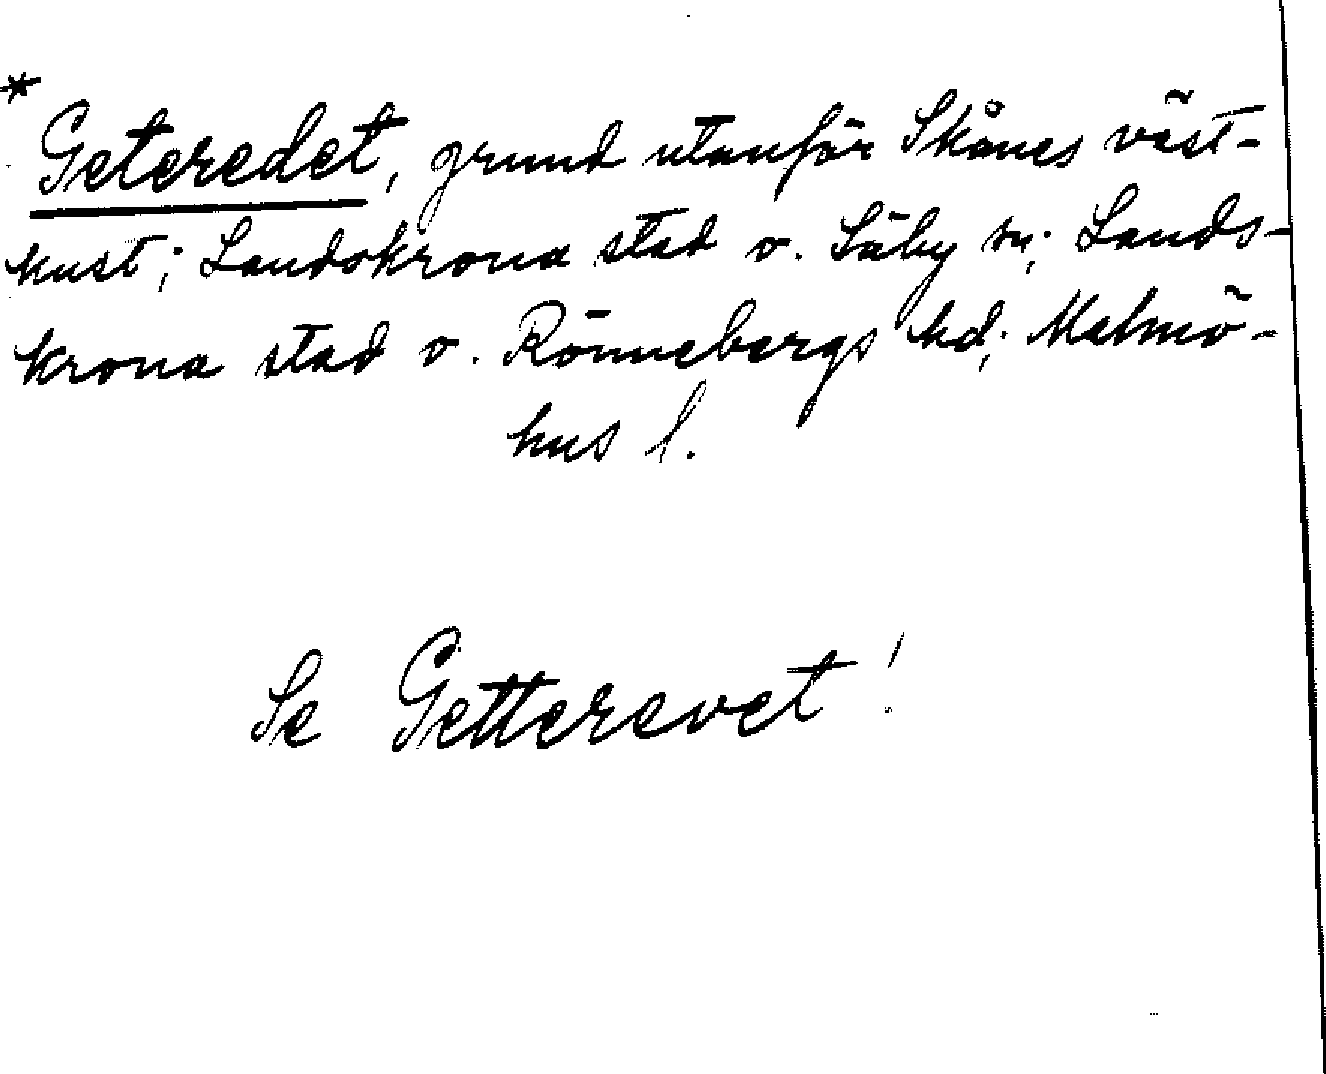 * Geteredet, grund utanför Skånes väst-
kust; Landskrona stad o. Säby sn; Lands-
krona stad o. Rönnebergs hd; Malmö-
hus l.
Se Getterevet!